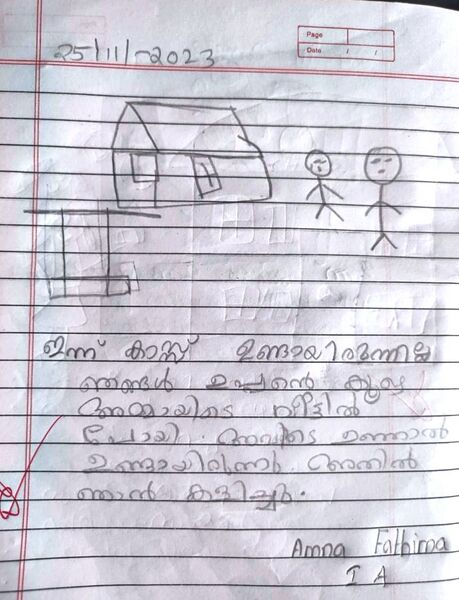 Page
Date / /
25/11/-2023
ഇന്ന് ക്ലാസ്സ് ഉണ്ടായിരുന്നില്ല
ഞങ്ങൾ ഉപ്പന്റെ കൂടെ
അമ്മായിടെ വീട്ടിൽ
പോയി. അവിടെ ഊഞ്ഞാൽ
ഉണ്ടായിരുന്നു. അതിൽ
ഞാൻ കളിച്ചു.
Amna Fathima
I A